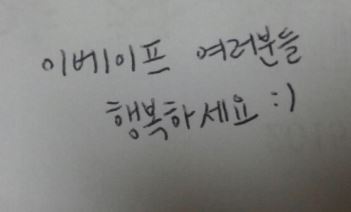 이베이프 여러분들
행복하세요 :)